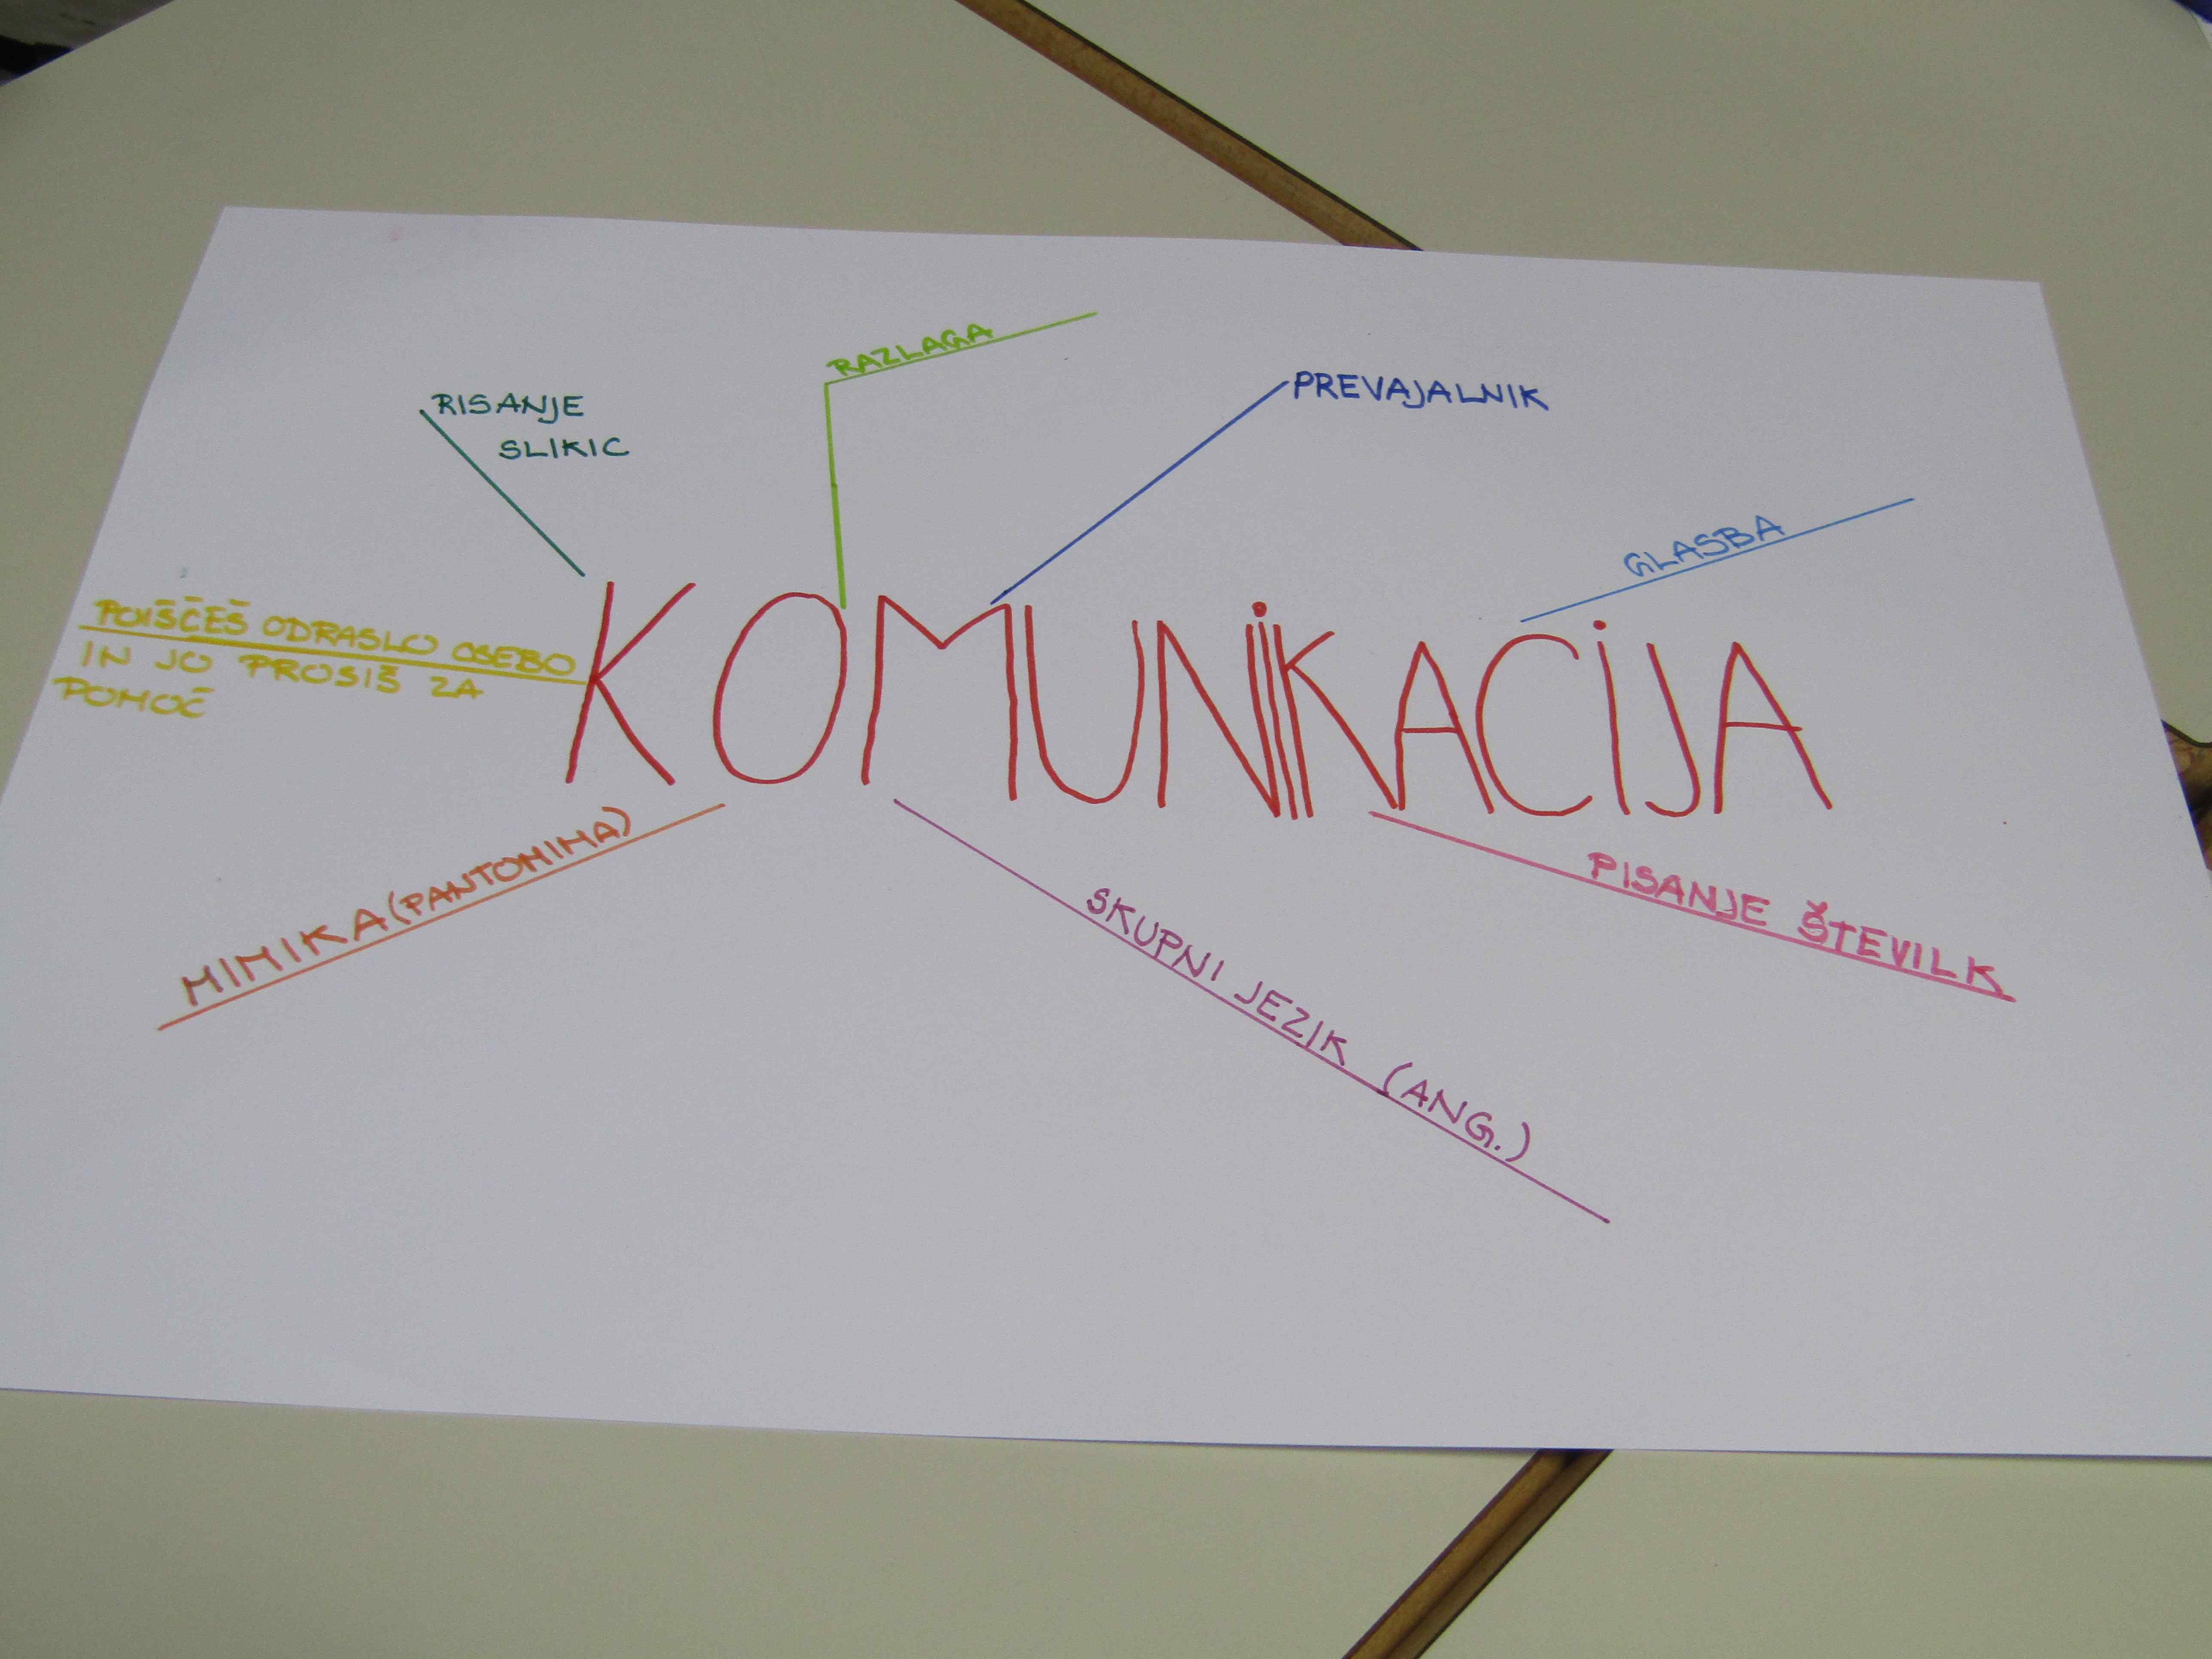 RAZLAGA
RISANJE
SLIKIC
PREVAJALNIK
GLASBA
POIŠČEŠ ODRASLO OSEBO
IN JO PROSIŠ ZA
POMOČ
KOMUNIKACIJA
MIMIKA (PANTOMIMA)
SKUPNI JEZIK (ANG.)
PISANJE ŠTEVILK